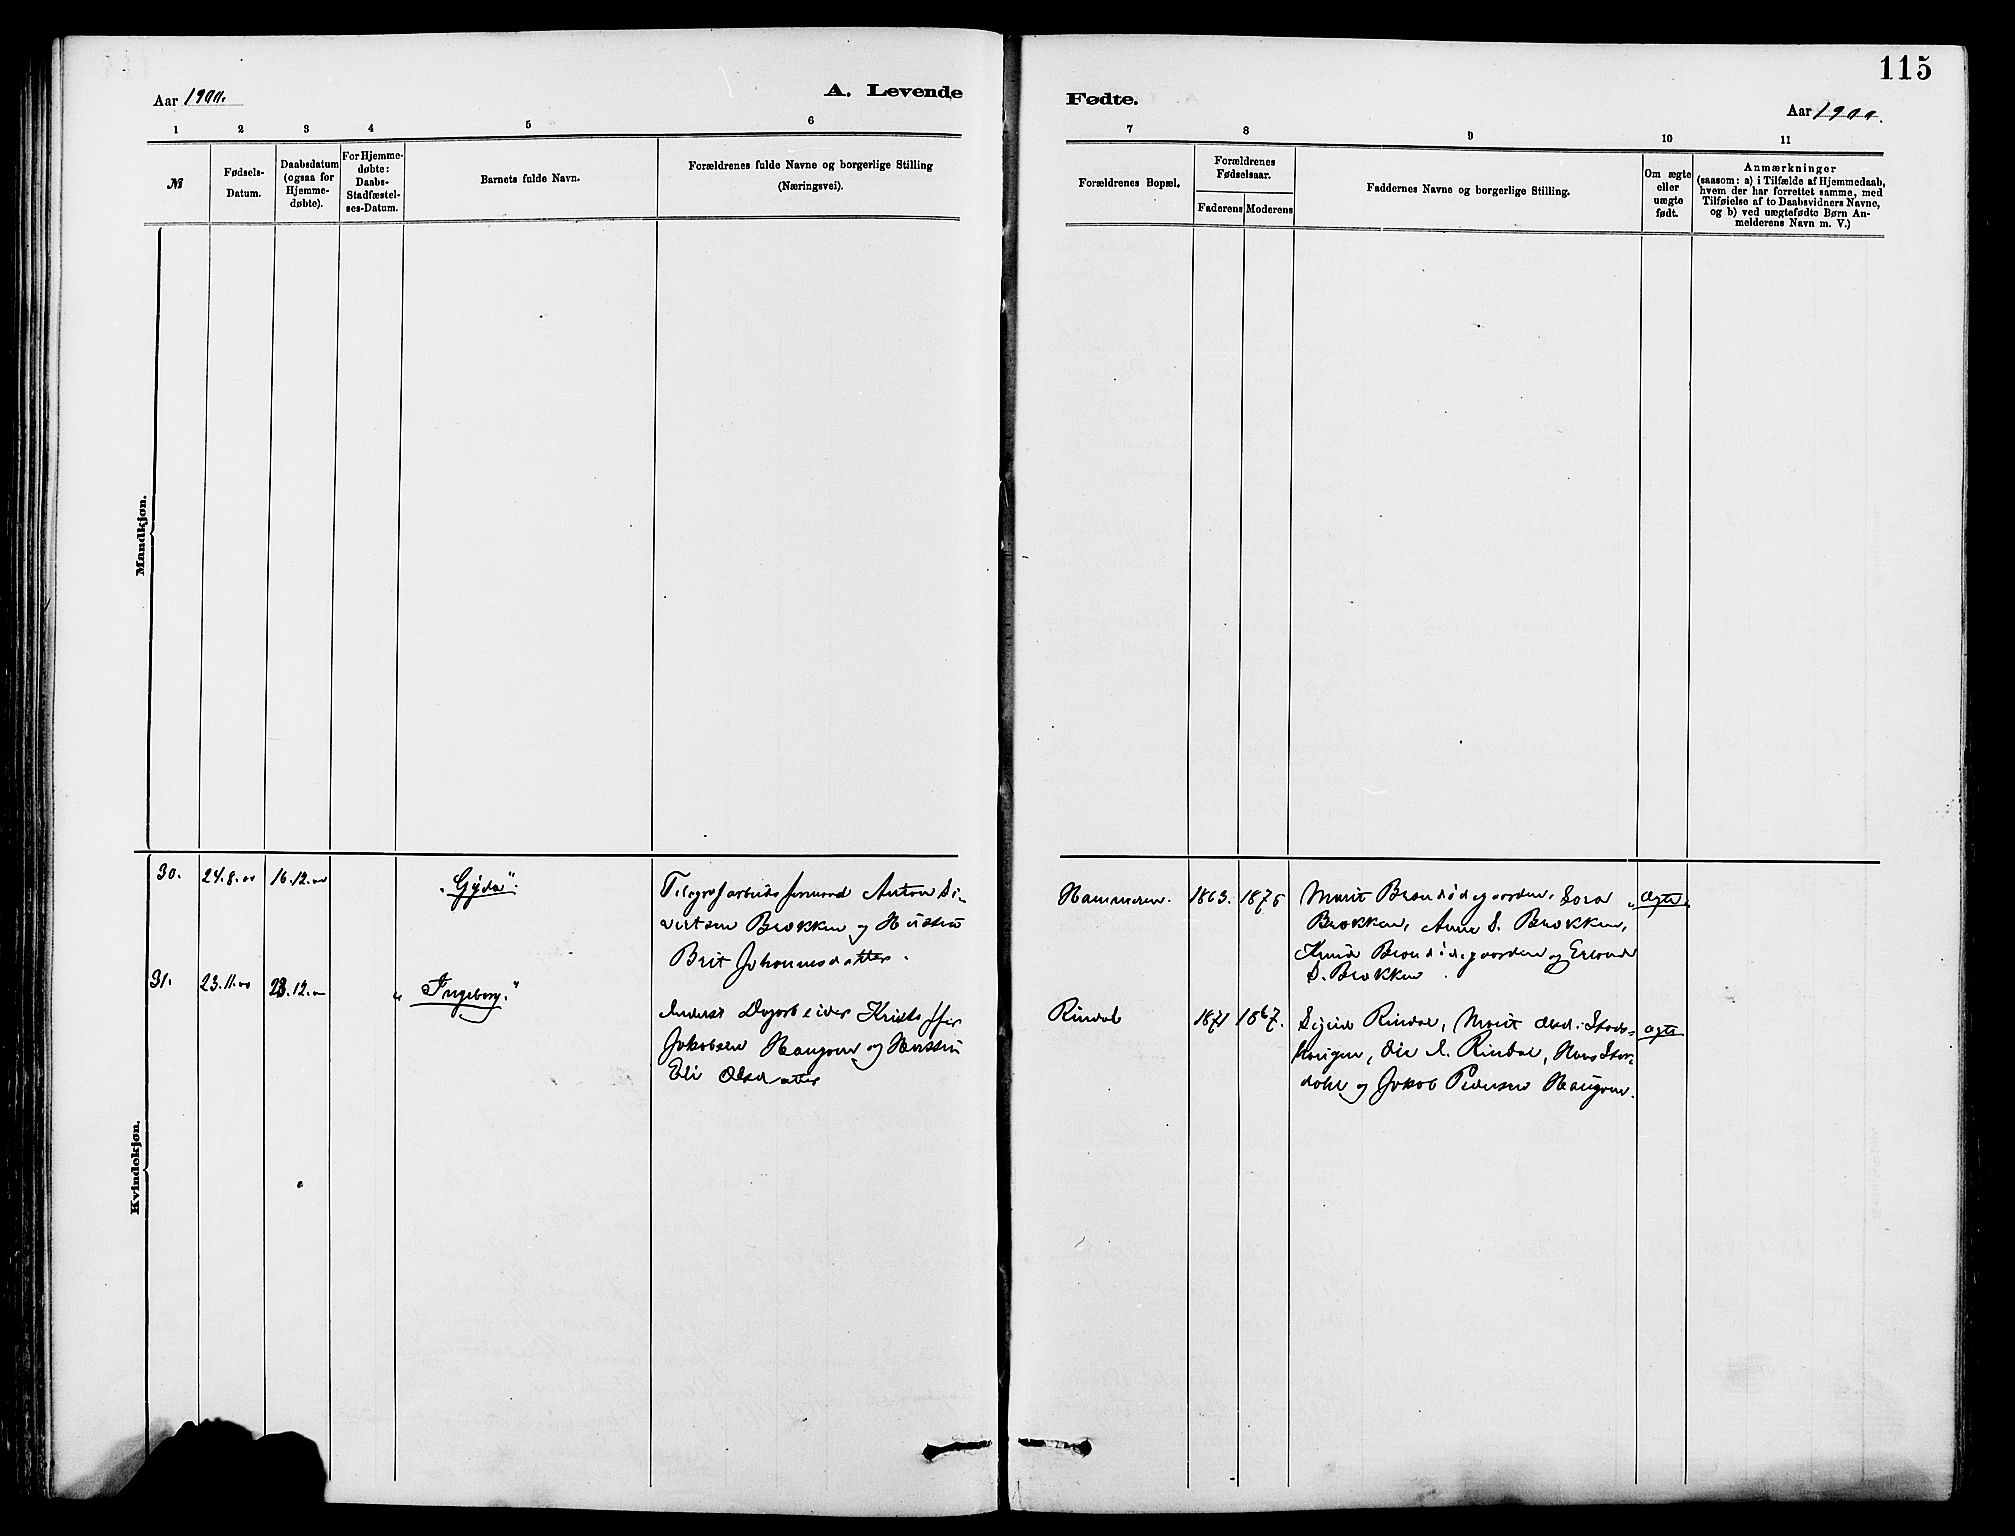 115
Aar 1900.
A. Levende
Fødte.
Aar 1900.
1 2 3 4 5 6
7 8 9 10 11
№
Fødsels-
Datum.
Daabsdatum
(ogsaa for
Hjemme-
døbte).
For Hjemme-
døbte:
Daabs-
Stadfæstel-
ses-Datum.
Barnets fulde Navn.
Forældrenes fulde Navne og borgerlige Stilling
(Næringsvei).
Forældrenes Bopæl.
Forældrenes
Fødselsaar.
Faderens Moderens
Faddernes Navne og borgerlige Stilling.
Om ægte
eller
uægte
født.
Anmærkninger
(saasom: a) i Tilfælde af Hjemmedaab,
hvem der har forrettet samme, med
Tilføielse af to Daabsvidners Navne,
og b) ved uægtefødte Børn An-
melderens Navn m. V.)
Mandkjøn.
Kvindekjøn.
30. 24.8.00 16.12.00
„Gyda".
Telegrafarbeidsformand Anton Si-
vertsen Brokken og Hustru
Brit Johannesdatter.
Hammeren. 1863. 1876
Marit Brendødegaarden, Lora
Brokken, Anne S. Brokken,
Knud Brendødegaarden og Erland
S. Brokken.
„Ægte„
31. 23.11.00 23.12.00
„Ingeborg."
Dagarbeider Kristoffer
Jakobsen Haugen og Hustru
Eli Olsdatter
Rindal 1871 1867.
Rindal, Marit Olsd.
Ole Rindal, Hans Stor-
dahl og Jakob Pedersen Haugen.
ægte